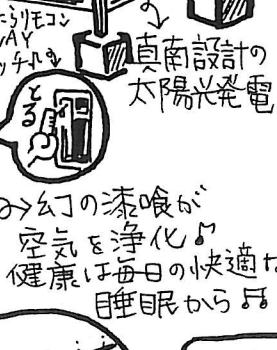 たらリモコン
WAY
ッチル
真南設計の
太陽光発電
とる
幻の漆喰が
空気を浄化♫
健康は毎日の快適な
睡眠から♫